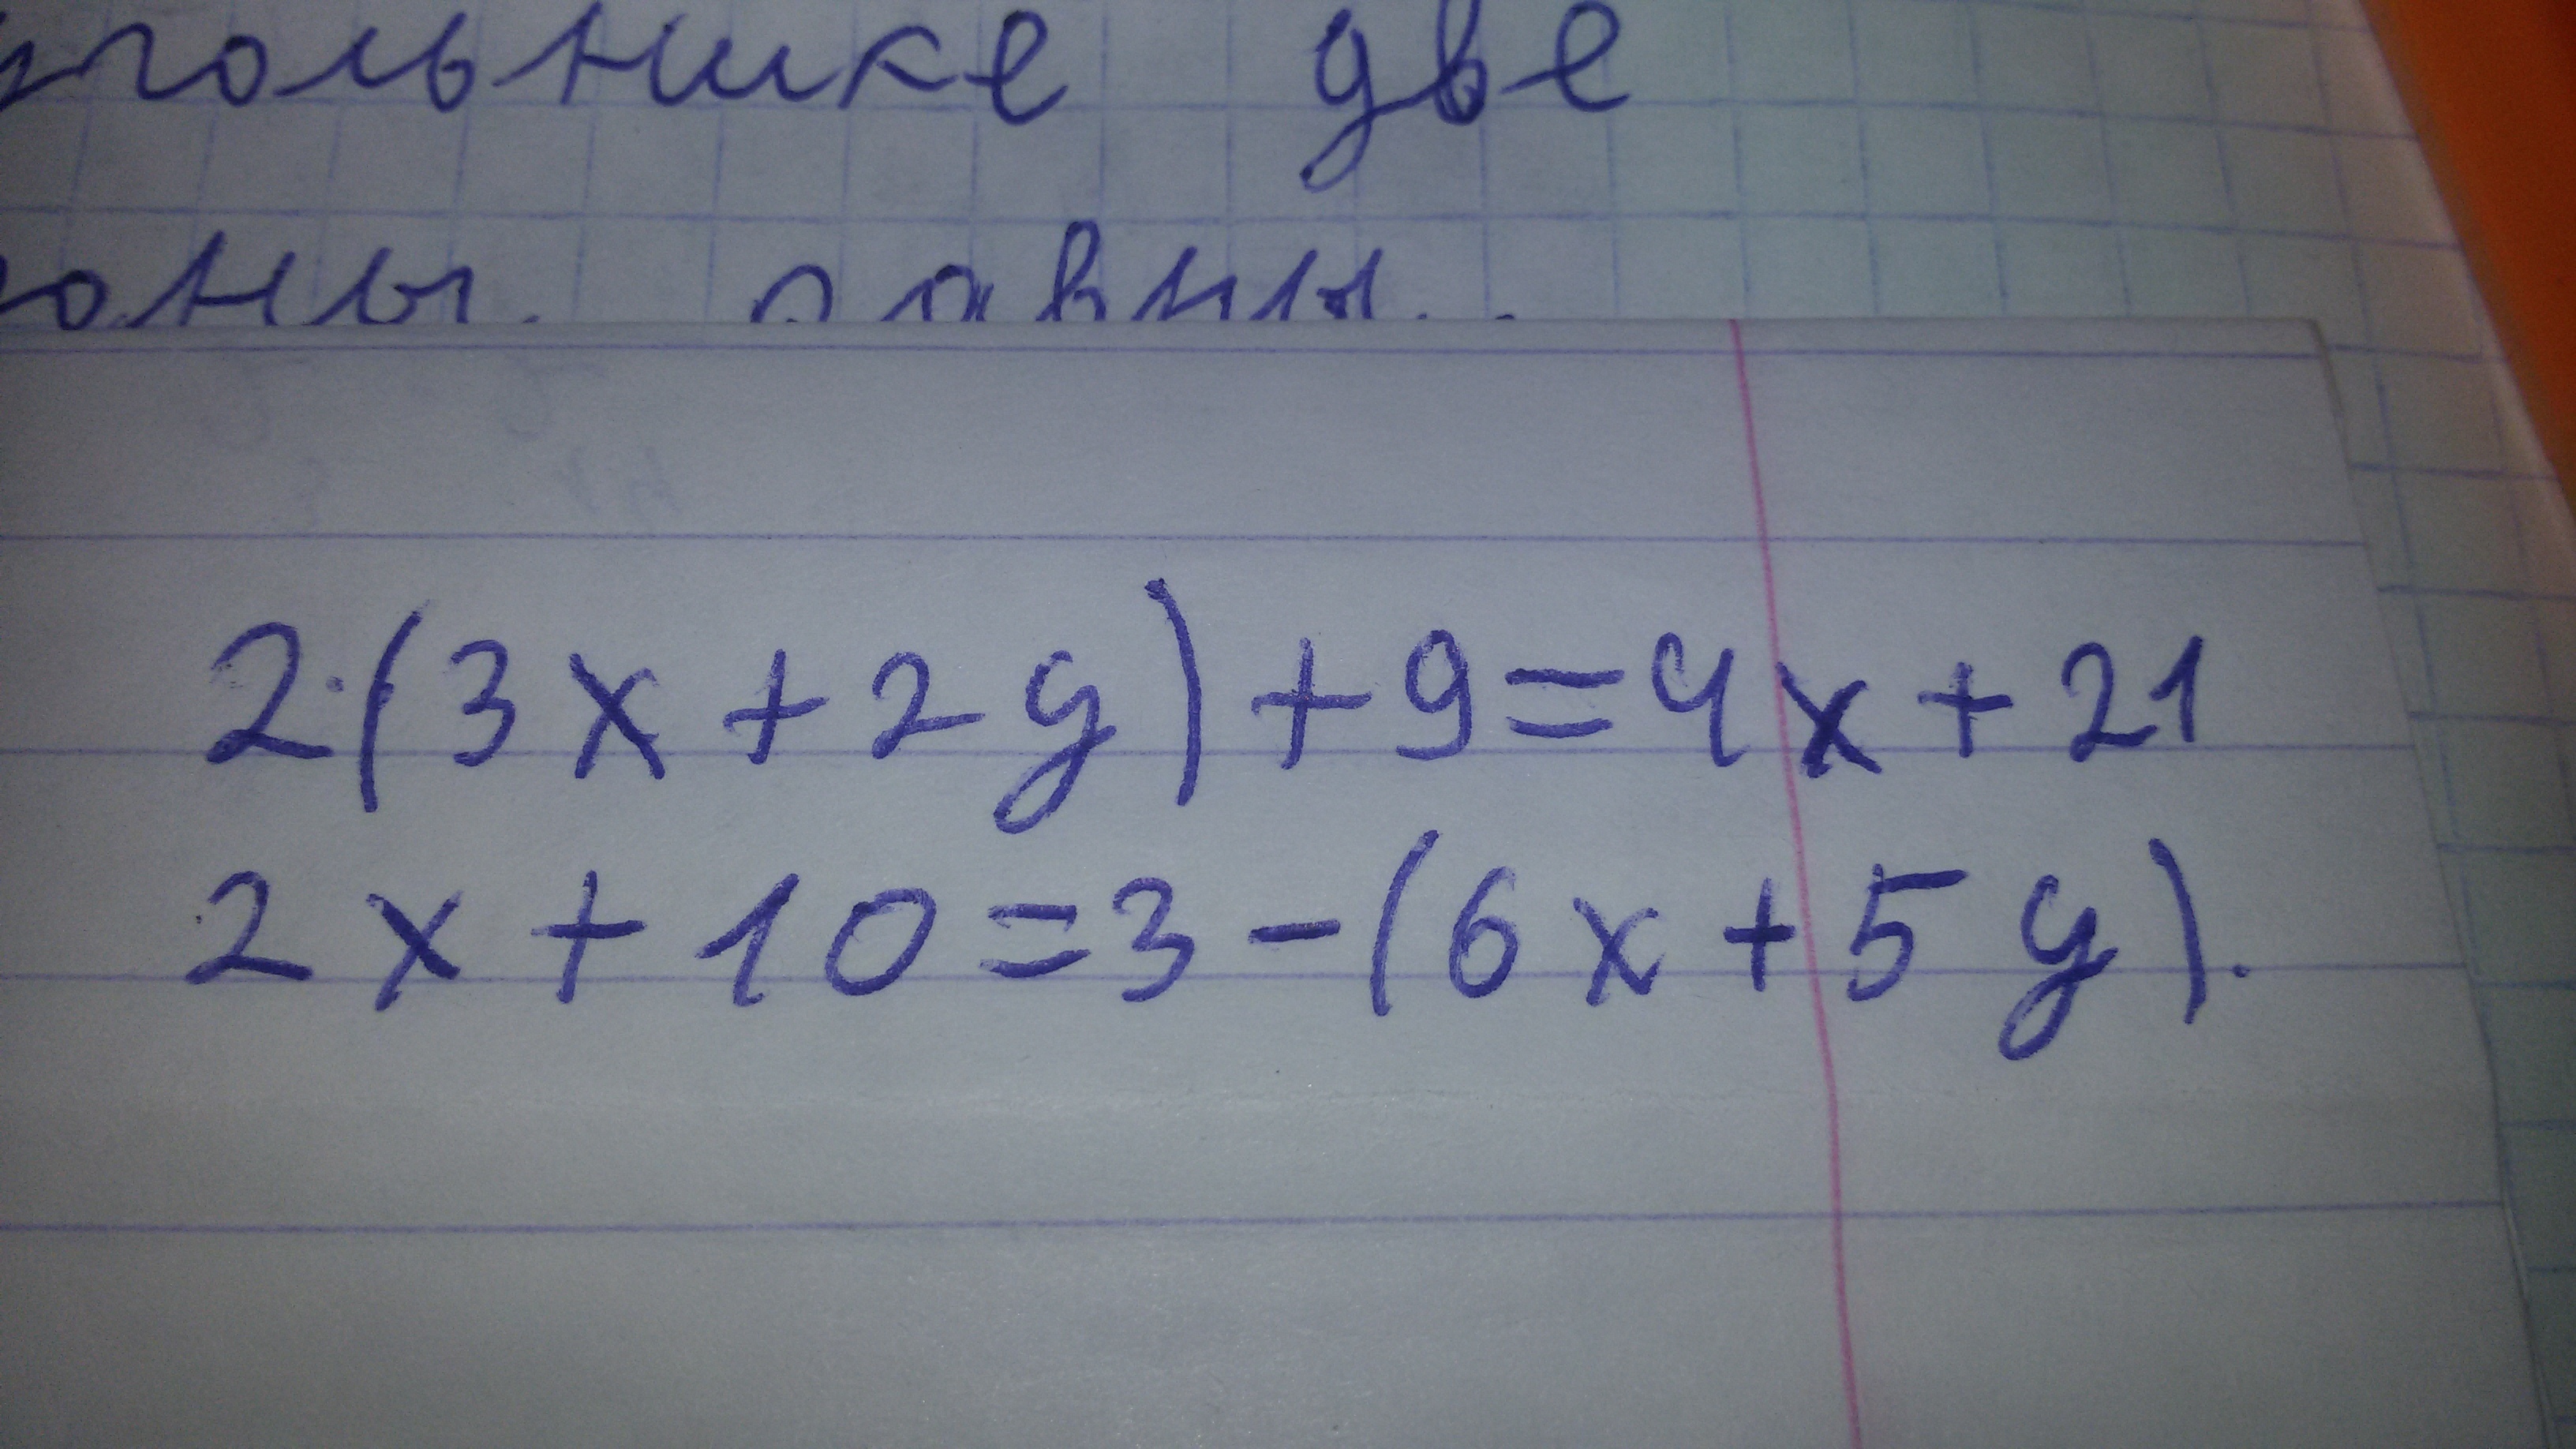 угольнике две
оны равны.
2·(3x+2y)+9=4x+21
2x+10=3-(6x+5y).